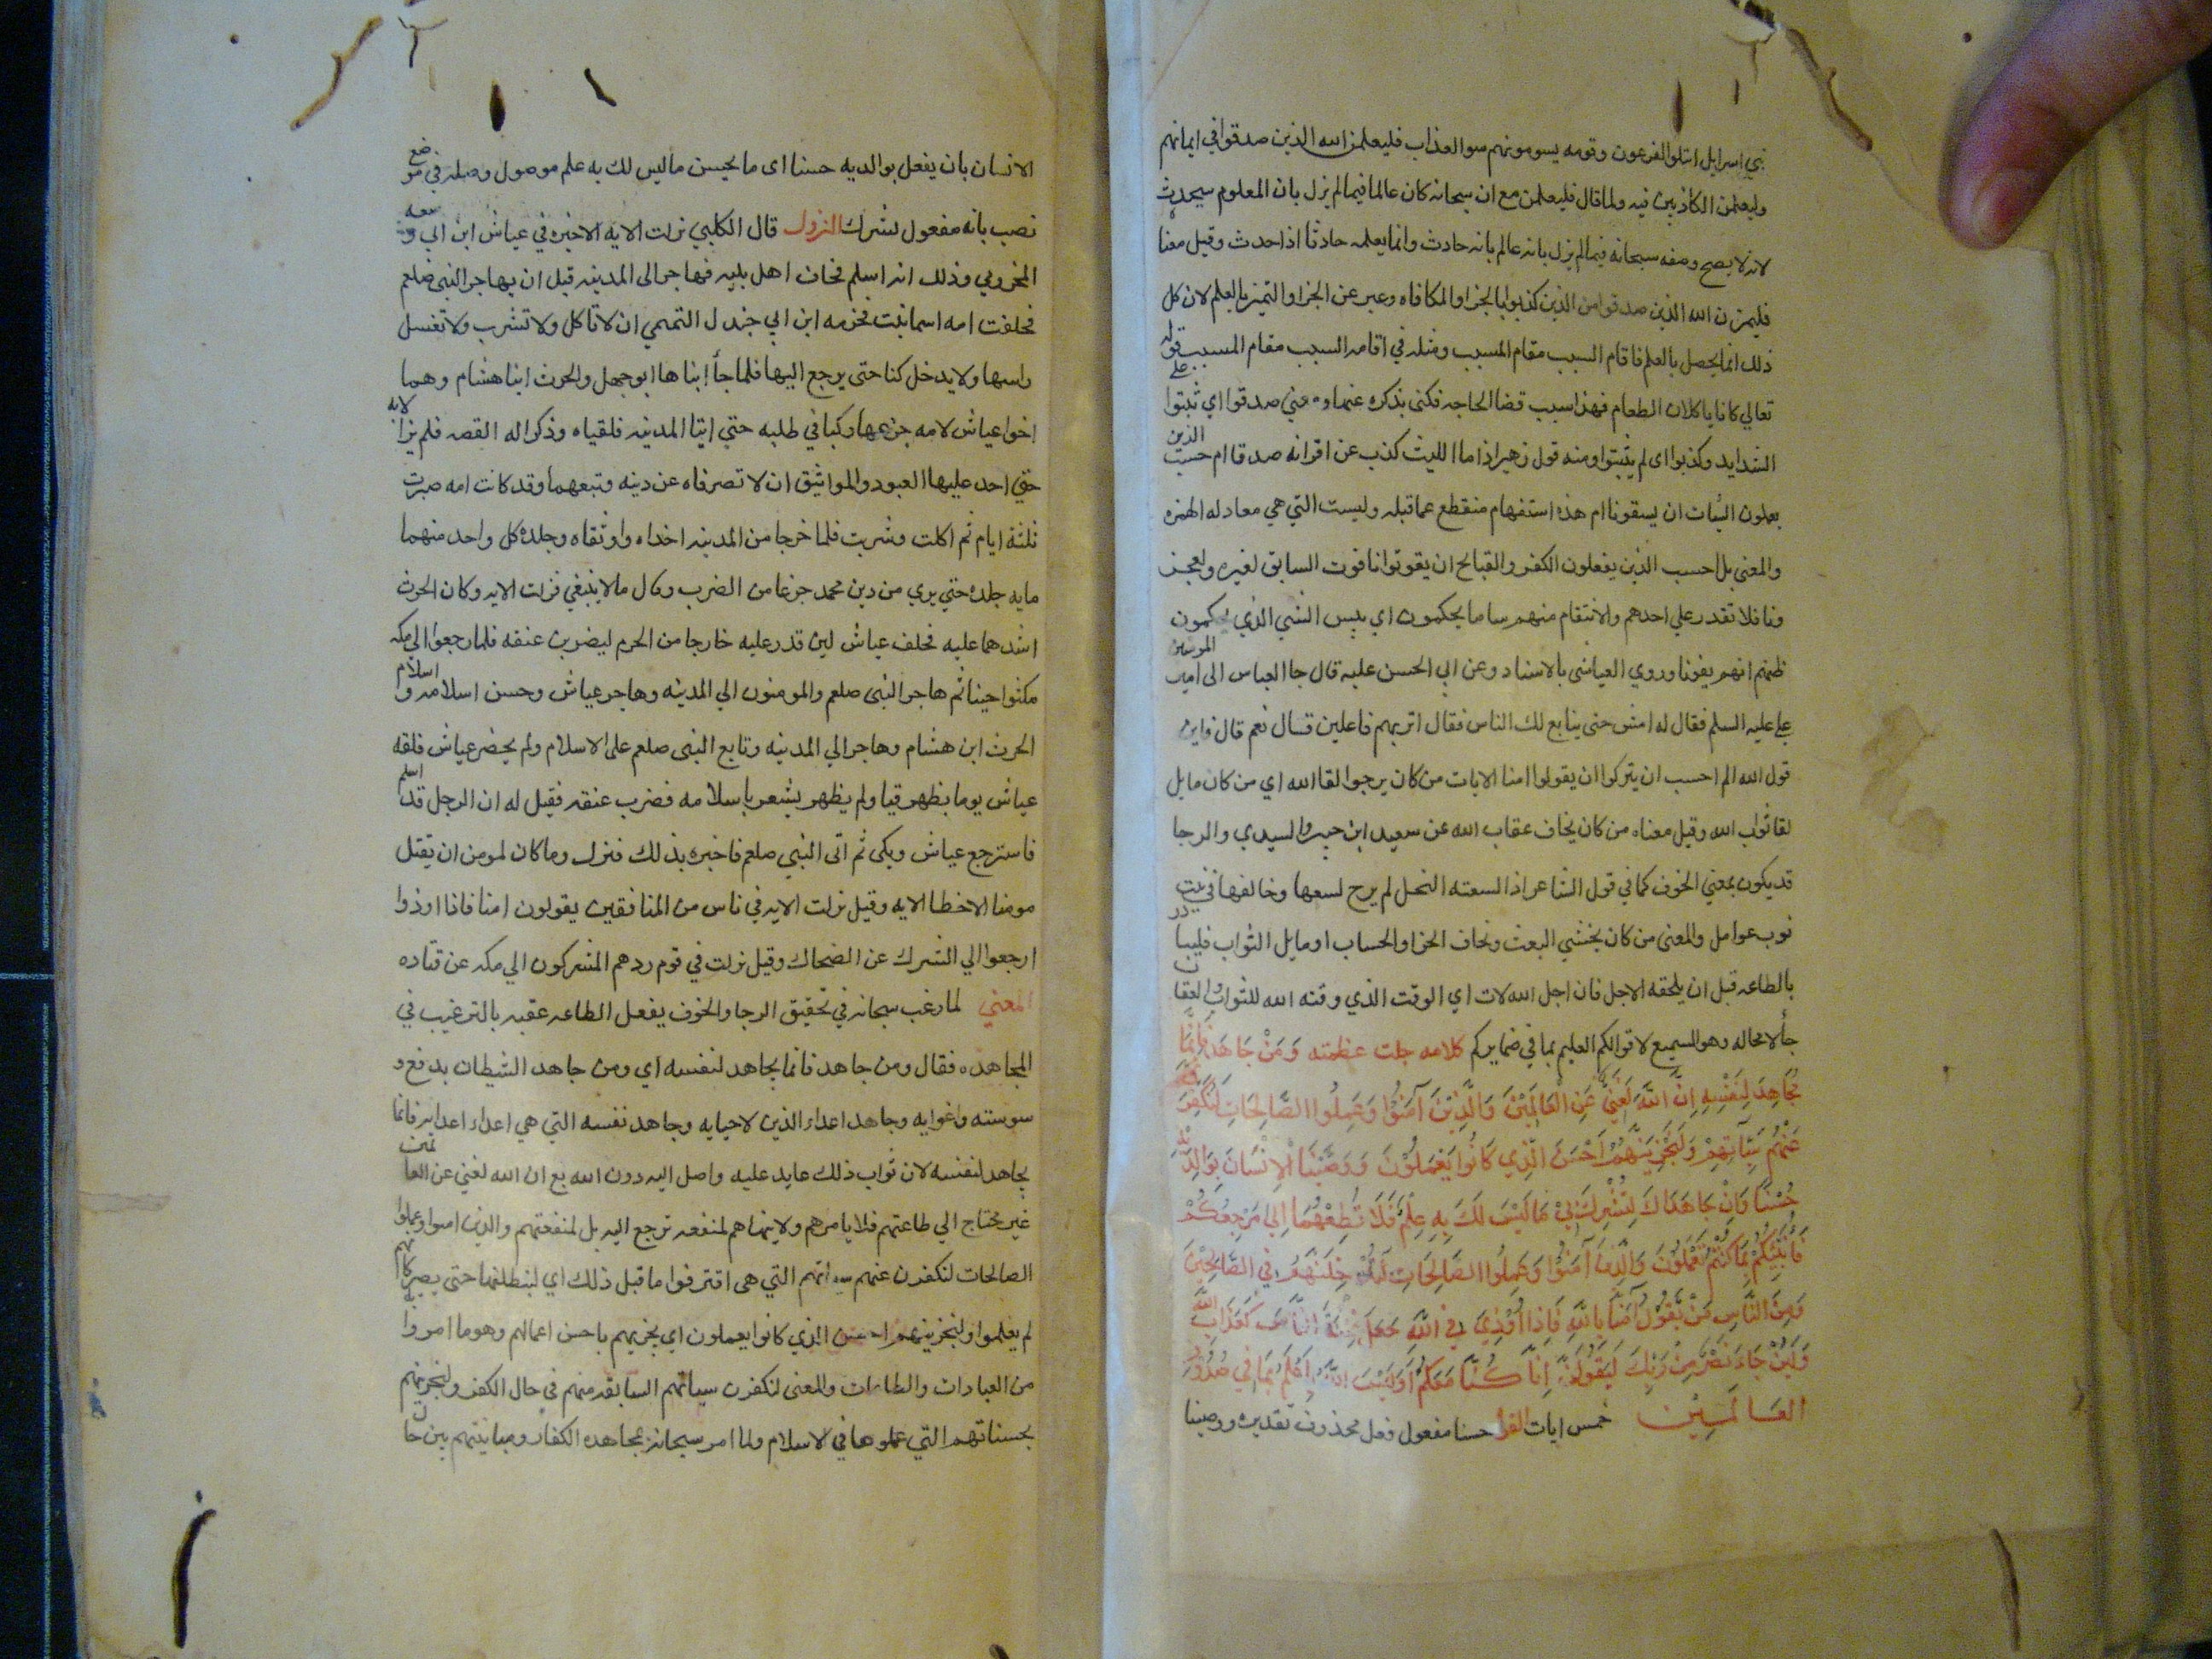 بني اسرايل ابتلوا بفرعون وقومه يسومونهم سوا العذاب فليعلمن الله الذين صدقوا في ايمانهم
وليعلمن الكاذبين فيه ولما قال فليعلمن مع ان سبحانه كان عالما فيما لم يزل بان المعلوم سيحدث
لانه لا يصح وصفه سبحانه فيما لم يزل بانه عالم بانه حادث وانما يعلمه حادثا اذا حدث وقيل معنا
فليميزن الله الذين صدقوا من الذين كذبوا بالجزا والمكافاه وعبر عن الجزا والتميز بالعلم لان كل
ذلك انما يحصل بالعلم فاقام السبب مقام المسبب ومثله في اقامه السبب مقام المسبب قوله
تعالي كانا ياكلان الطعام فهذا سبب قضا الحاجه فكنى بذكره عنها ومعني صدقوا اي ثبتوا علي
الشدايد وكذبوا اى لم يثبتوا ومنه قول زهير اذا ما الليث كذب عن اقرانه صدقا ام حسب الذين
يعملون السيات ان يسبقونا ام هذه استفهام منقطع عما قبله وليست التي هي معادله الهمزه
والمعني بل احسب الذين يفعلون الكفر والقبائح ان يفوتونا فوت السابق لغيره ولعجز
ونا فلا نقدر علي احدهم والانتقام منهم سا ما يحكمون اي بيس الشي الذي يحكمون
ظنهم انهم يفوتنا وروي العياشي بالاسناد وعن ابي الحسن عليه قال جا العباس الى امير المومنين
علي عليه السلم فقال له امش حتى يبايع لك الناس فقال اتريهم فاعلين قال نعم قال فاين
قول الله الم احسب ان يتركوا ان يقولوا امنا الايات من كان يرجوا لقا الله اي من كان مايل
لقا ثواب الله وقيل معناه من كان يخاف عقاب الله عن سعيد ابن جبير والسيدي والرجا
قد يكون بمعني الخوف كما في قول الشاعر اذا لسعته النحل لم يرج لسعها وخالفها في بيت
نوب عوامل والمعنى من كان يخشي البعث ويخاف الجزا والحساب او مايل الثواب فليبادر
بالطاعه قبل ان يلحقه الاجل فان اجل الله لات اي الوقت الذي وقته الله للثواب والعقاب
جأ لا محاله وهو السميع لاقوالكم العليم بما في ضمايركم كلامه جلت عظمته وَمَنْ جَاهَدَ فَإِنَّمَا
يُجَاهِدُ لِنَفْسِهِ اِنَّ اللَّهَ لَغَنِيٌّ عَنِ الْعَالَمِيْنَ وَالَّذِيْنَ آمَنُوْا وَعَمِلُوا الصَّالِحَاتِ لَنُكَفِّرَنَّ
عَنْهُمْ سَيِّآتِهِمْ وَلَنَجْزِيَنَّهُمْ اَحْسَنَ الَّذِي كَانُوا يَعْمَلُوْنَ وَوَصَّيْنَا الْاِنْسَانَ بِوَالِدَيْهِ
حُسْنًا وَاِنْ جَاهَدَاكَ لِتُشْرِكَ بِيْ مَا لَيْسَ لَكَ بِهِ عِلْمٌ فَلَا تُطِعْهُمَا اِلَي مَرْجِعُكُمْ
فَاُنَبِّئُكُمْ بِمَا كُنْتُمْ تَعْمَلُوْنَ وَالَّذِيْنَ آمَنُوْا وَعَمِلُوا الصَّالِحَاتِ لَنُدْخِلَنَّهُمْ فِي الصَّالِحِيْنَ
وَمِنَ النَّاسِ مَنْ يَقُوْلُ آمَنَّا بِاللَّهِ فَاِذَا اُوْذِيَ فِي اللَّهِ جَعَلَ فِتْنَةَ النَّاسِ كَعَذَابِ اللَّهِ
وَلَئِنْ جَاءَ نَصْرٌ مِنْ رَبِّكَ لَيَقُوْلُنَّ اِنَّا كُنَّا مَعَكُمْ اَوَلَيْسَ اللَّهُ بِاَعْلَمَ بِمَا فِي صُدُوْرِ
الْعَالَمِيْنَ خمس ايات القرأ حسنا مفعول فعل محذوف تقديره ووصينا
الانسان بان يفعل بوالديه حسنا اى ما يحسن ما ليس لك به علم موصول وصله في موضع
نصب بانه مفعول لتشرك النزول قال الكلبي نزلت الايه الاخيره في عياش ابن ابي
المخزومي وذلك انه اسلم فخاف اهل بيته فهاجر الى المدينه قبل ان يهاجر النبي صلعم
فحلفت امه اسما بنت مخرمه ابن ابي جندل التميمي ان لا تاكل ولا تشرب ولا تغسل
راسها ولا يدخل كنا حتى يرجع اليها فلما جأ ابناها ابو جهل والحرث ابنا هشام وهما
اخوا عياش لامه جزعها ركبا في طلبه حتي اتيا المدينه فلقياه وذكرا له القصه فلم يزالا به
حتي احد عليها العهود والمواثيق ان لا تصرفاه عن دينه وتبعهما وقد كانت امه صبرت
ثلثة ايام ثم اكلت وشربت فلما خرجا من المدينه اخذاه واوثقاه وجلده كل واحد منهما
مايه جلده حتي بري من دين محمد جزعا من الضرب وقال ما لا ينبغي فزلت الايه وكان الحرث
اشدهما عليه فحلف عياش لين قدر عليه خارجا من الحرم ليضربن عنقه فلما رجعوا الي مكه
مكثوا حينا ثم هاجر النبى صلعم والمومنون الي المدينه وهاجر عياش وحسن اسلامه و اسلام
الحرث ابن هشام وهاجر الي المدينه وتابع النبى صلعم على الاسلام ولم يحضر عياش فلقه
عياش يوما بظهر قبا ولم يظهر يشعر باسلامه فضرب عنقه فقيل له ان الرجل قد اسلم
فاسترجع عياش وبكى ثم اتى النبي صلعم فاخبره بذلك فنزل وما كان لمومن ان يقتل
مومنا الا خطا الايه وقيل نزلت الايه في ناس من المنافقين يقولون امنا فاذا اوذوا
ارجعوا الي الشرك عن الضحاك وقيل نزلت في قوم ردهم المشركون الي مكه عن قتاده
المعني لما رغب سبحانه في تحقيق الرجا والخوف يفعل الطاعه عقبه بالترغيب في
المجاهده فقال ومن جاهد فانما يجاهد لنفسه اي ومن جاهد الشيطان بدفع و
سوسته واغوايه وجاهد اعداء الدين لاحيايه وجاهد نفسه التي هي اعداء اعدايه فانما
يجاهد لنفسه لان ثواب ذلك عايد عليه واصل اليه دون الله بع ان الله لغني عن العالمين
غير محتاج الي طاعتهم فلا يامرهم ولا ينهاهم لمنفعه ترجع اليه بل لمنفعتهم والذين امنوا وعملوا
الصالحات لنكفرن عنهم سيياتهم التي هى اقترفوا ما قبل ذلك اي لنبطلنها حتى يصير كانهم
لم يعلموا ولنجزينهم احسن الذي كانوا يعملون اي يجزيهم باحسن اعمالهم وهو ما امروا به
من العبادات والطاعات والمعنى لنكفرن سياتهم السابقه منهم في حال الكفر ولنجزينهم
بحسناتهم التي عملوها في لاسلام ولما امر سبحانه بمجاهده الكفار ومباينتهم بين حا